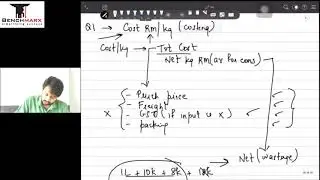 BENCHMARX
Q1 → Cost Rm/kg (costing)
Cost/kg → Tot Cost
Net kg Rm (ar for cons)
- Purch price
- Freight
x - GST (if input is x)
- packing
→ Net (wastage)
1L + 10k + 8k +